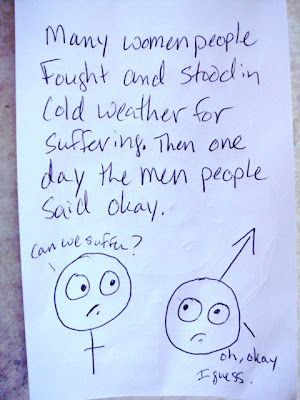 Many women people
Fought and stood in
Cold weather for
suffering. Then one
day the men people
said okay.
can we suffer?
oh, okay
I guess.